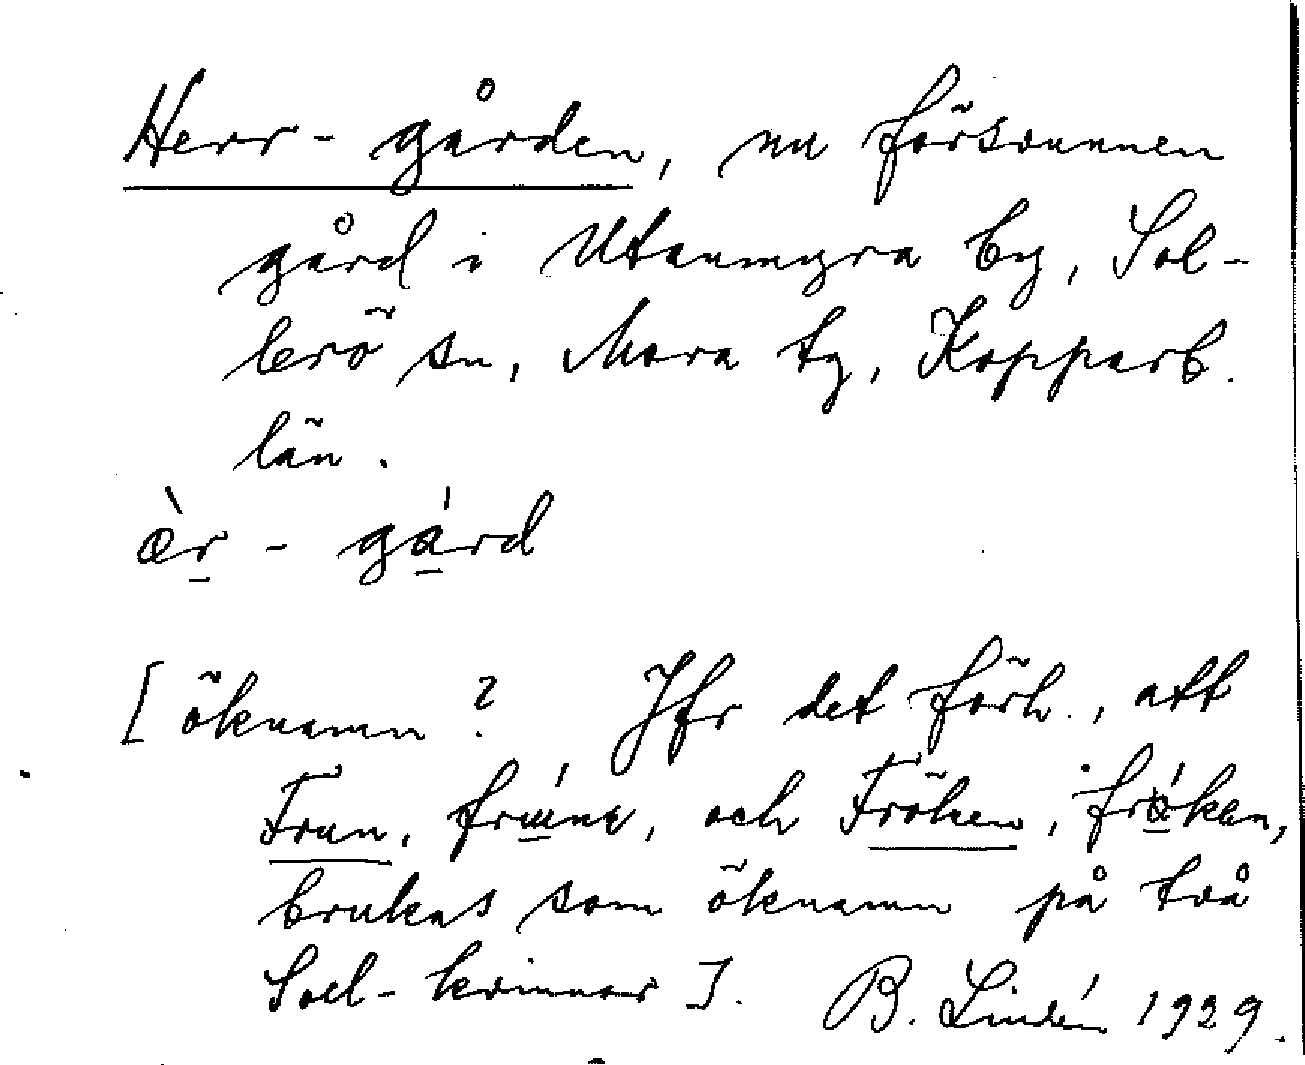 Herr-gården, nu försvunnen
gård i Utanmyra by, Sol-
lerö sn, Mora tg, Kopparb.
län.
æ̀r̲ - gá̲rd
[öknamn? Jfr det förh., att
Frun, och Fröken,
brukas som öknamn på två
Soll-kvinnor]. B. Lindén 1929.